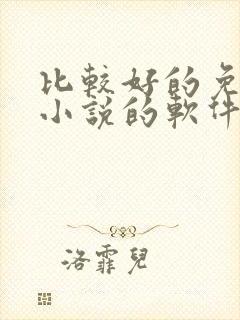 比較好的免
小說的軟件
洛霏兒